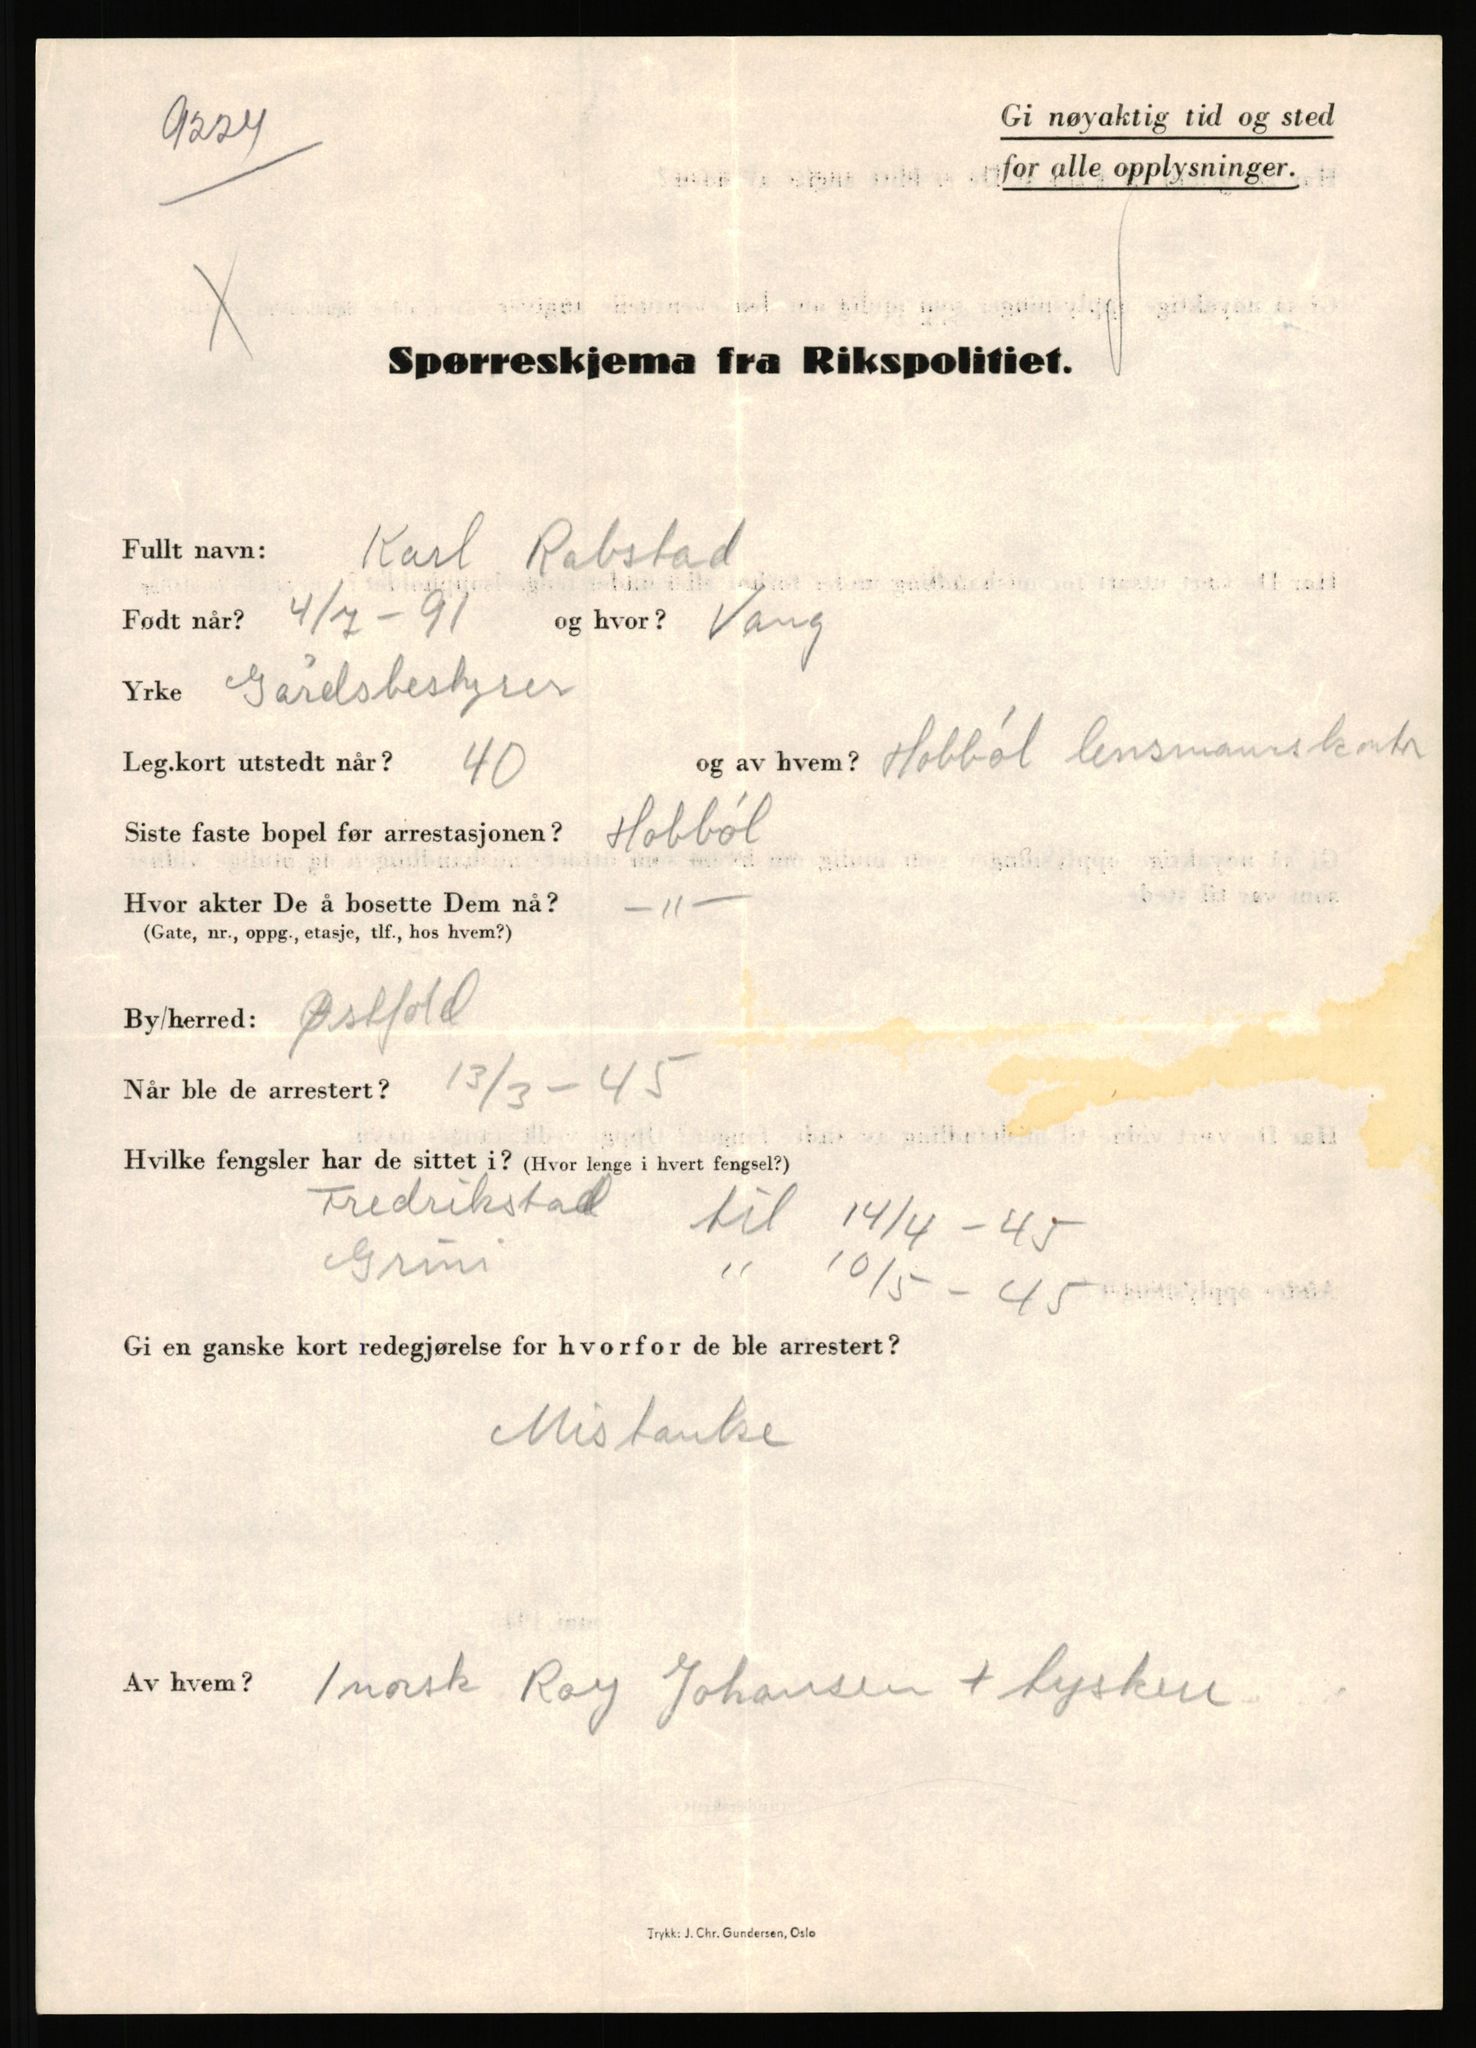 9224
Gi nøyaktig tid og sted
for alle opplysninger.
Spørreskjema fra Rikspolitiet.
Fullt navn: Karl Rabstad
Født når? 4/7 - 91 og hvor? Vang
Yrke Gårdsbestyrer
Leg.kort utstedt når? 40 og av hvem? Hobböl lensmannskontor
Siste faste bopel før arrestasjonen? Hobböl
Hvor akter De å bosette Dem nå? -"-
(Gate, nr., oppg., etasje, tlf., hos hvem?)
By/herred: Østfold
Når ble de arrestert? 13/3 - 45
Hvilke fengsler har de sittet i? (Hvor lenge i hvert fengsel?)
Fredrikstad til 14/4 - 45
Grini " 10/5 - 45
Gi en ganske kort redegjørelse for hvorfor de ble arrestert?
Mistanke
Av hvem? 1 norsk Roy Johansen + tysken
Trykk: J. Chr. Gundersen, Oslo